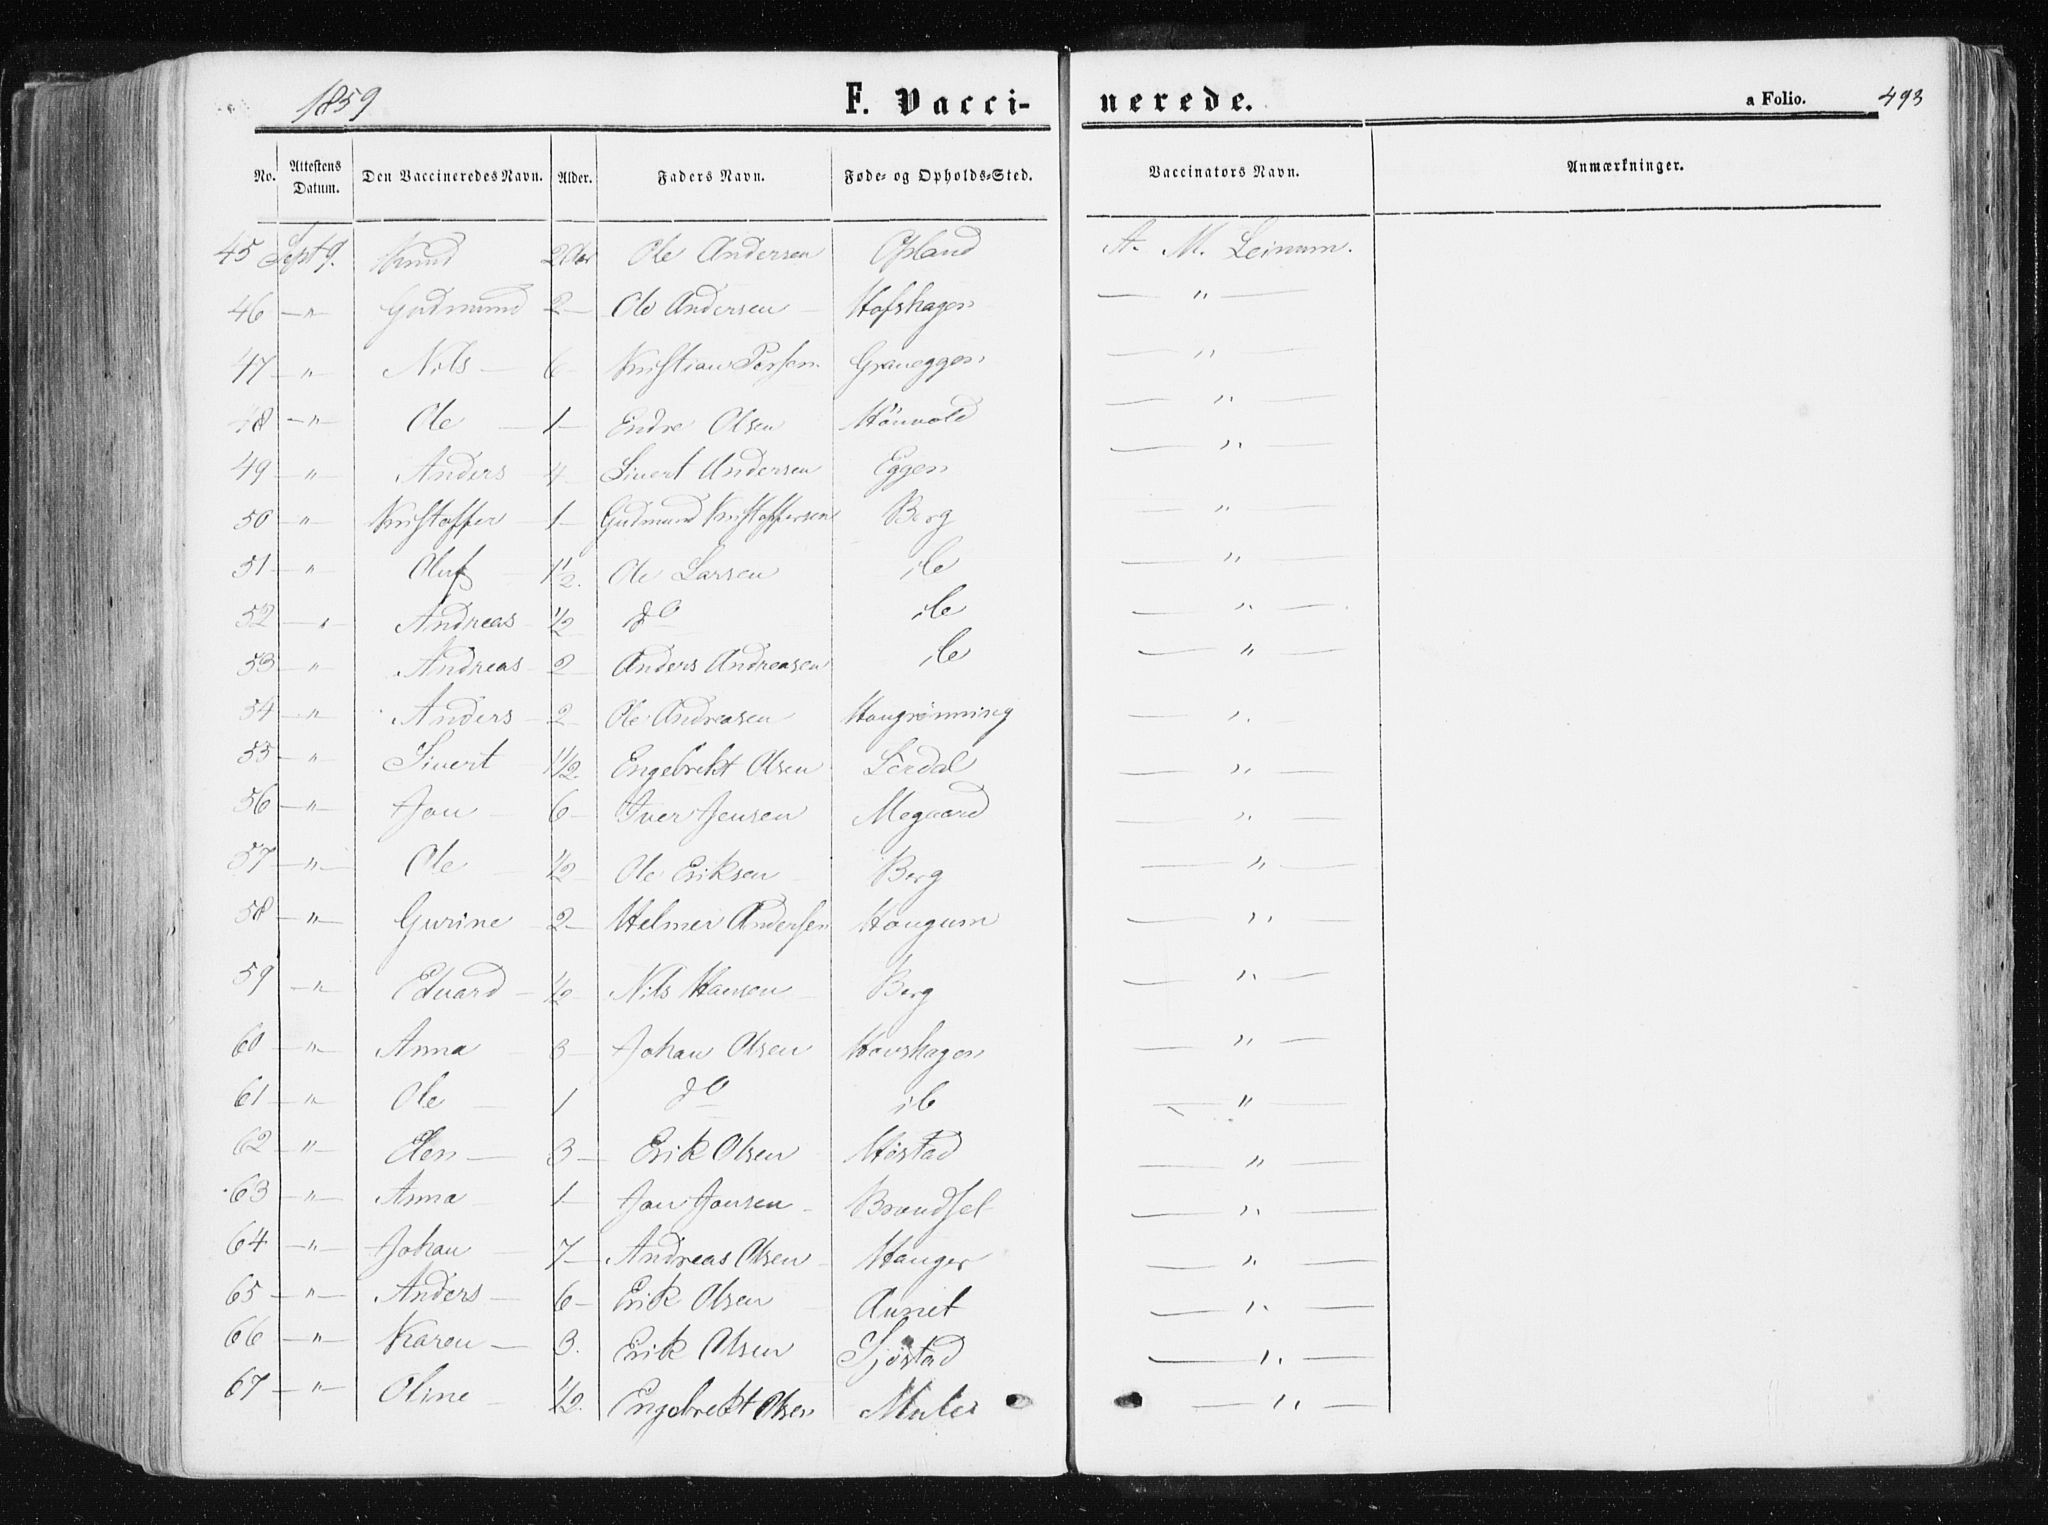 1859 F. Vacci- nerede. a Folio. 493
No. Attestens Datum. Den Vaccineredes Navn. Alder. Faders Navn. Føde- og Opholds-Sted. Vaccinators Navn. Anmærkninger.
45 Sept 9. Knud 2 Aar Ole Andersen Opland A. M. Leinum.
46 — " Gudmund 2 — Ole Andersen — Hofshagen — " —
47 — " Nils — 6 — Kristian Graneggen — " —
48 — " Ole — 1 — Endre Olsen — " —
49 — " Anders — 4 — Sivert Andersen Eggen — " —
50 — " Kristoffer — 1 — Gudmund Kristoffersen Berg — " —
51 — " Oluf — 1 1/2. Ole Larsen ib — " —
52 — " Andreas — 1/2 do ib — " —
53 — " Andreas — 2 — Anders Andreasen ib — " —
54 — " Anders — 2 — Ole Andreasen Haugrønning — " —
55 — " Sivert — 1 1/2. Engebrekt Olsen Lerdal — " —
56 — " Jon — 6 — Iver Jensen Megaard — " —
57 — " — Ole — 1/2 — Ole Eriksen — Berg — " —
58 — " — Gurine — 2 — Helmer Andersen Haugum — " —
59 — " — Edvard — 1/2 — Nils Hansen — Berg — " —
60 — " — Anna — 3 — Johan Olsen Hovshagen — " —
61 — " — Ole — 1 do ib — " —
62 — " — Elen — 3 — Erik Olsen — Høstad — " —
63 — " — Anna — 1 — Jon Jonsen — Brandsel — " —
64 — " — Johan — 7 — Andreas Olsen — Hanger — " —
65 — " — Anders — 6 — Erik Olsen — Aunet — " —
66 — " — Karen — 3. Erik Olsen Sjøstad — " —
67 — " — Oline — 1/2. Engebrekt Olsen Mule — " —